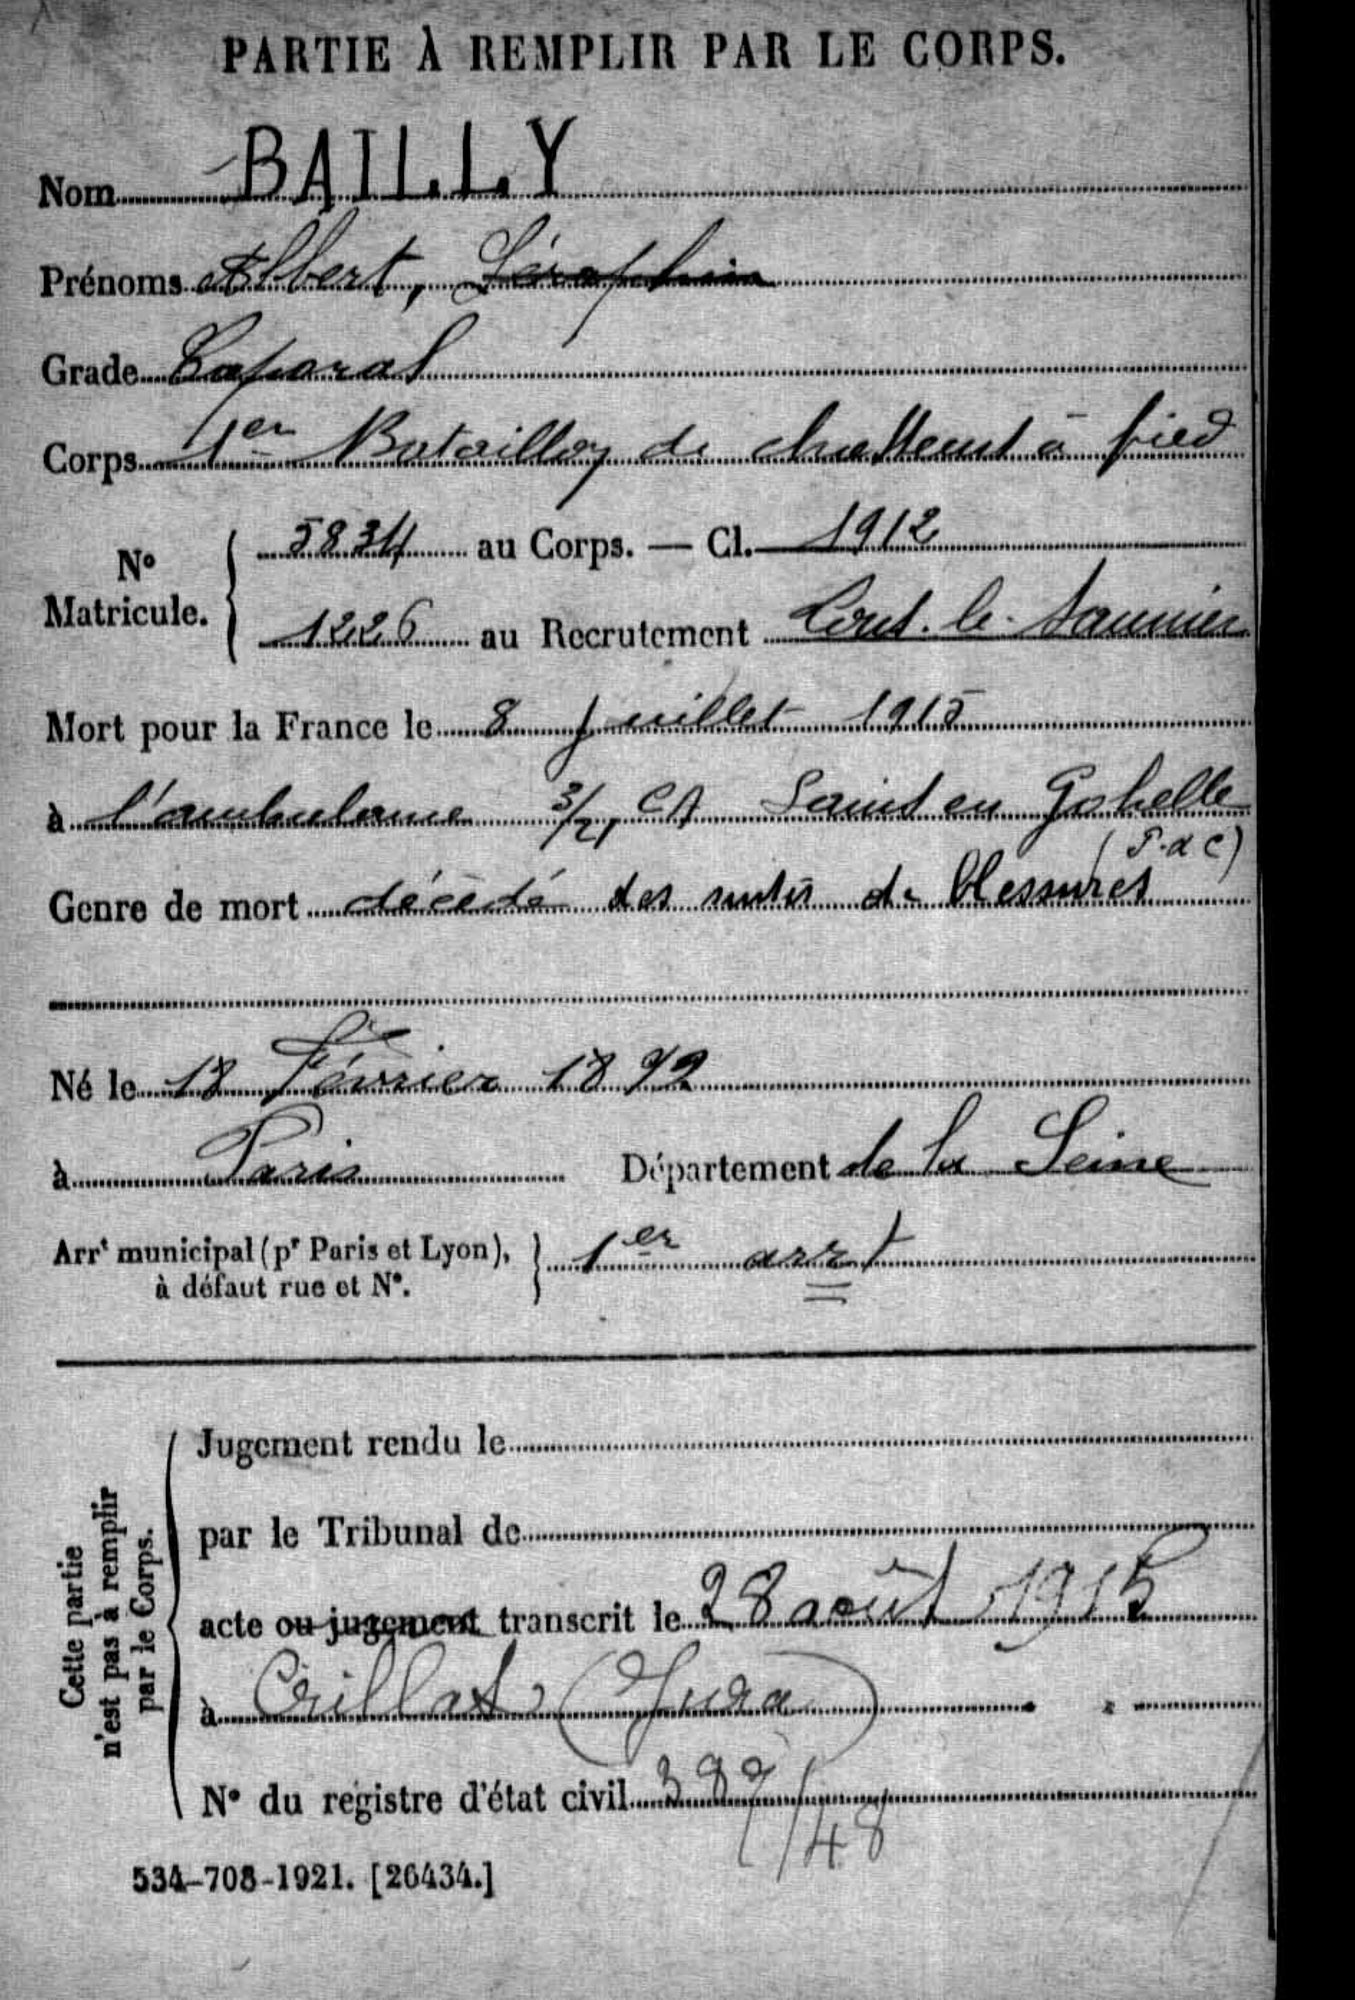 PARTIE À REMPLIR PAR LE CORPS.
Nom BAILLY
Prénoms Albert, Séraphin
Grade Caporal
Corps 1er Bataillon de chasseurs à pied
No Matricule. 5834 au Corps. — Cl. 1912
1226 au Recrutement Lons-le-Saunier
Mort pour la France le 8 Juillet 1915
à l'ambulance 3/21 CA Sains en Gohelle
(P. d C)
Genre de mort décédé des suites de blessures
Né le 18 Février 1892
à Paris Département de la Seine
Arrt municipal (pr Paris et Lyon), à défaut rue et No. 1er arrt
Cette partie n'est pas à remplir par le Corps.
Jugement rendu le
par le Tribunal de
acte ou jugement transcrit le 28 août 1915
à Crillat (Jura)
No du registre d'état civil
534-708-1921. [26434.]